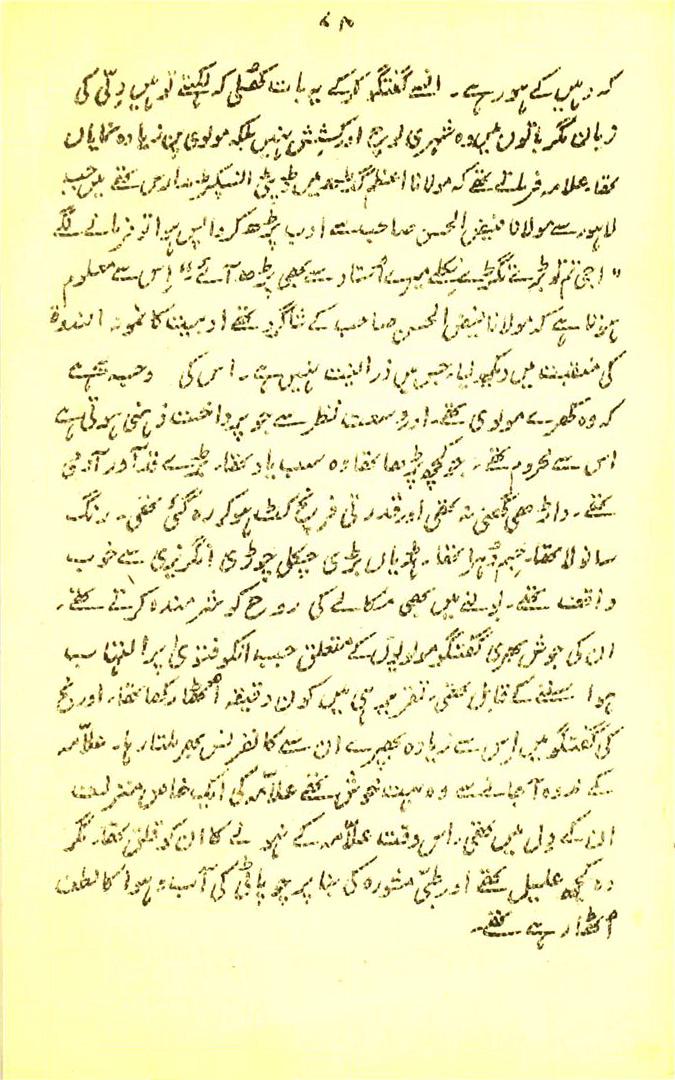 کہ وہیں کے ہو رہے ۔ ان سے گفتگو کرکے یہ بات کھلی کہ لکھتے تو ہیں دِلّی کی
زبان مگر باتوں میں وہ شہری لوچ اور کشش نہیں بلکہ مولوی پن زیادہ نمایاں
تھا، علامہ فرماتے تھے کہ مولانا اعظم گڑھ میں ڈپٹی انسپکٹر مدارس تھے میں جب
لاہور سے مولانا فیض الحسن صاحب سے ادب پڑھ کر واپس ہوا تو فرمانے لگے
" اجی تم تو بڑے تگڑے نکلے میرے اُستاد سے بھی پڑھ آئے" اِس سے معلوم
ہوتا ہے کہ مولانا فیض الحسن صاحب کے شاگرد تھے ادبیت کا نمونہ الندوۃ
کی منقبت میں دیکھ لیا، جس میں ذرا لینت نہیں ہے ۔ اس کی وجہ یہ ہے
کہ وہ کھرے مولوی تھے، اور وسعت نظر سے جو پرداخت ذہنی ہوتی ہے
اس سے محروم تھے ۔ جو کچھ پڑھا تھا وہ سب یاد تھا۔ بڑے قدآور آدمی
تھے ۔ داڑھی گھنی نہ تھی اور قدرتی فرنچ کٹ ہو کر رہ گئی تھی ۔ رنگ
سانولا تھا، جسم دُہرا تھا ۔ ہڈیاں بڑی چکل چوڑی انگریزی سے خوب
واقف تھے ۔ بولنے میں بھی مکالے کی روح کو شرمندہ کرتے تھے ۔
ان کی جوش بھری گفتگو مولویوں کے متعلق جیب انکو فنڈی پر التہاب
ہوا سننے کے قابل تھی، تقریر ہی میں کون دقیقہ اُٹھا رکھا تھا، اور نج
کی گفتگو میں اِس سے زیادہ بھپرے ان سے کانفرنس بھر ملتا رہا ۔ علاّمہ
کے ندوہ آجانے سے وہ بہت خوش تھے علاّمہ کی ایک خاص منزلت
ان کے دل میں تھی، اس وقت علاّمہ کے نہ ہونے کا ان کو قلق تھا، مگر
وہ کچھ علیل تھے اور طبّی مشورہ کی بنا پر چوپاٹی کی آب و ہوا کا لطف
اُٹھا رہے تھے ۔